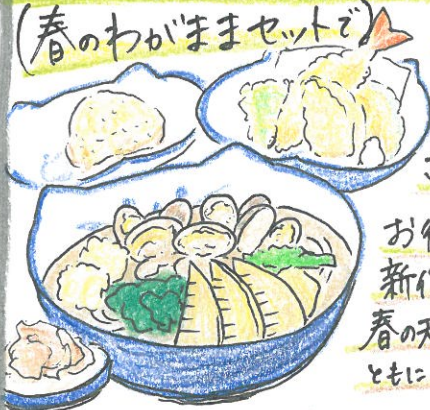 (春のわがままセットで)
お
新
春の天
ともに